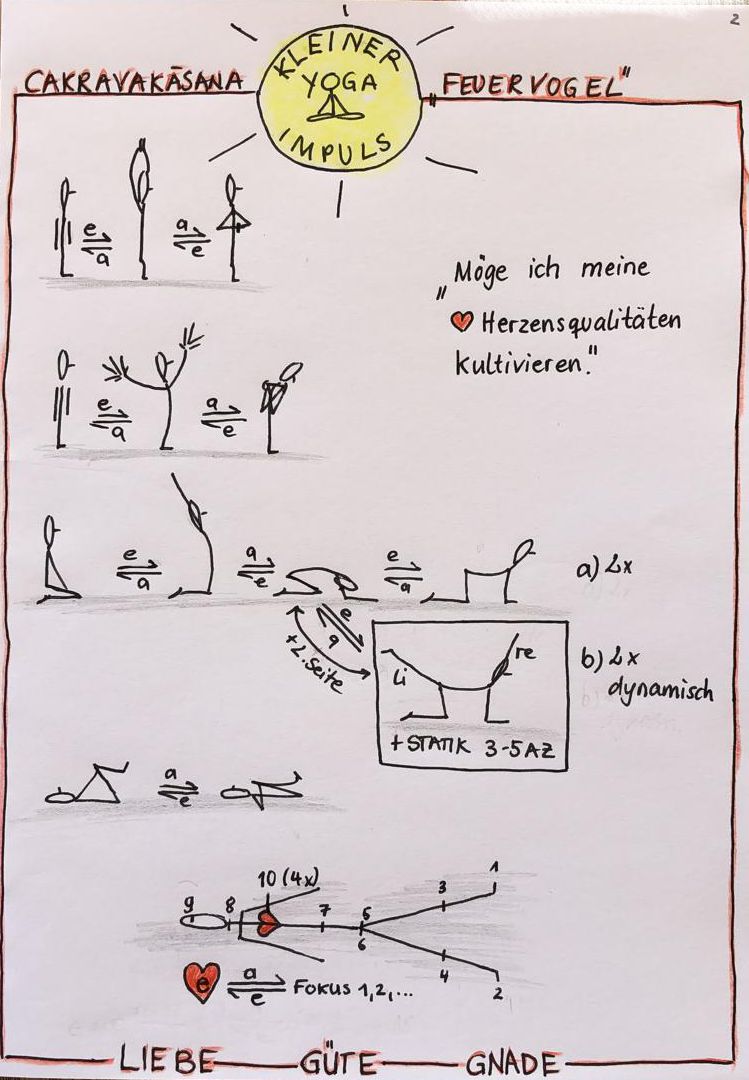 2
KLEINER
YOGA
IMPULS
CAKRAVAKĀSANA
„FEUERVOGEL"
e
a
a
e
„Möge ich meine
Herzensqualitäten
kultivieren."
e
a
a
e
e
a
a
e
e
a
a) 2x
e
a
+2.Seite
Li
re
+ STATIK 3-5 AZ
b) 2x
dynamisch
a
e
10 (4x)
9
8
7
5
6
3
1
4
2
e
a
e
FOKUS 1,2,...
LIEBE GÜTE GNADE